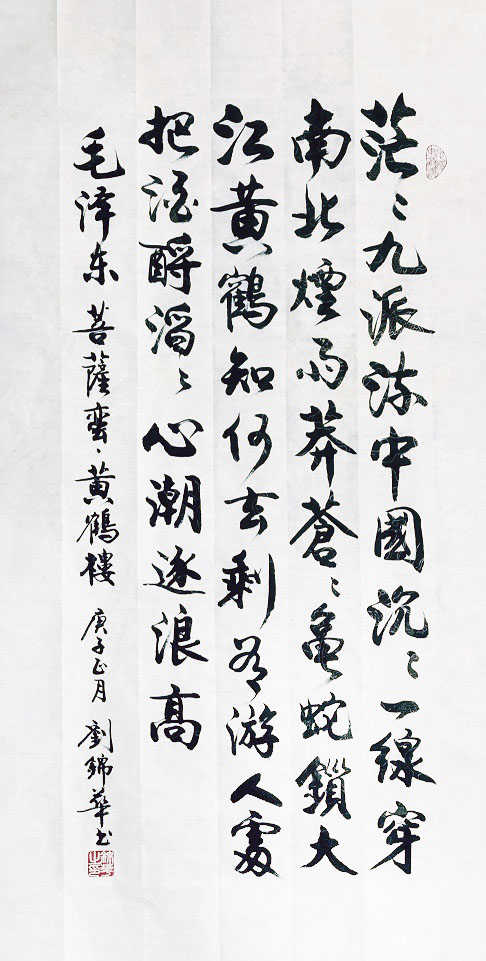 茫〻九派流中國沉〻一線穿
南北煙雨莽蒼〻亀蛇鎖大
江黄鶴知何去剩有游人處
把酒酹滔〻心潮逐浪高
毛泽东菩薩蛮、黄鶴樓 庚子正月 劉錦華书